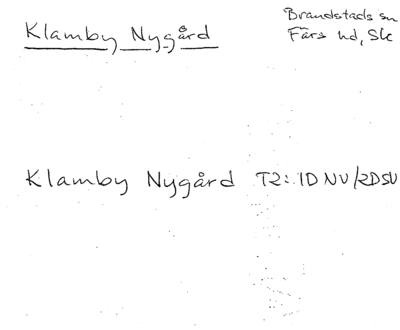 Klamby Nygård
Brandstads sn
Färs hd, Sk
Klamby Nygård T2: 1D NV/2D SV